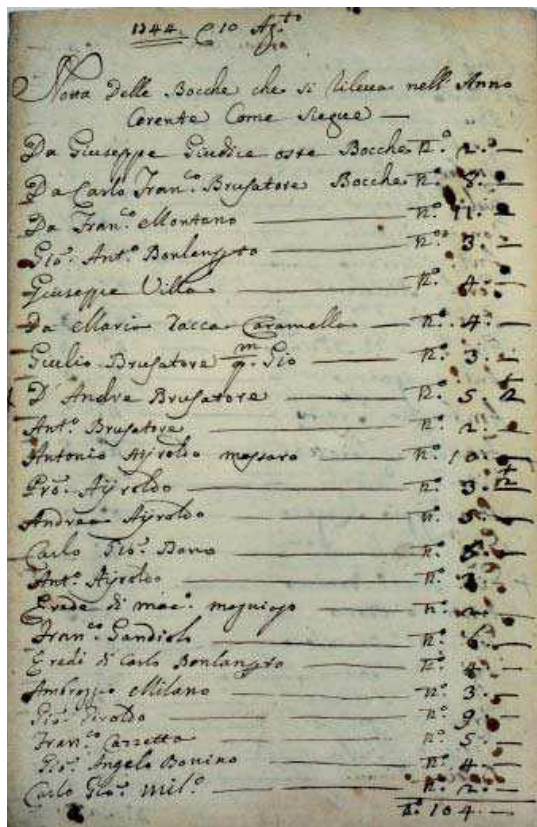 1744. 10 Ag.to
Nota Delle Bocche che si Rileva nell' Anno
Corente Come Siegue —
Da Giuseppe Giudice oste Bocche n.º 2. —
Da Carlo Fran.co Brusatore Bocche n.º 8. —
Da Fran.co Montano n.º 11. —
Gio. Ant.º n.º 3. —
Giuseppe Villa n.º 4. —
Da Maria Zacca Caramella n.º 4. —
Giulio Brusatore Gio n.º 3. —
D' Andre Brusatore n.º 5.
Ant.º Brusatore n.º 2. —
Antonio Ayroldo massaro n.º 10.
Ayroldo n.º 3.
Andrea Ayroldo n.º 5. —
Carlo Gio. n.º
Ant.º Ayroldo n.º
Erede di n.º 2. —
Fran.co n.º 6. —
Eredi di Carlo n.º 4. —
Ambroggio Milano n.º 3. —
Gio. n.º 9. —
Fran.co Cazzetta n.º 5. —
Gio. Angelo Bonino n.º 4. —
Carlo Gio. Mil.º n.º 2. —
n.º 104. —